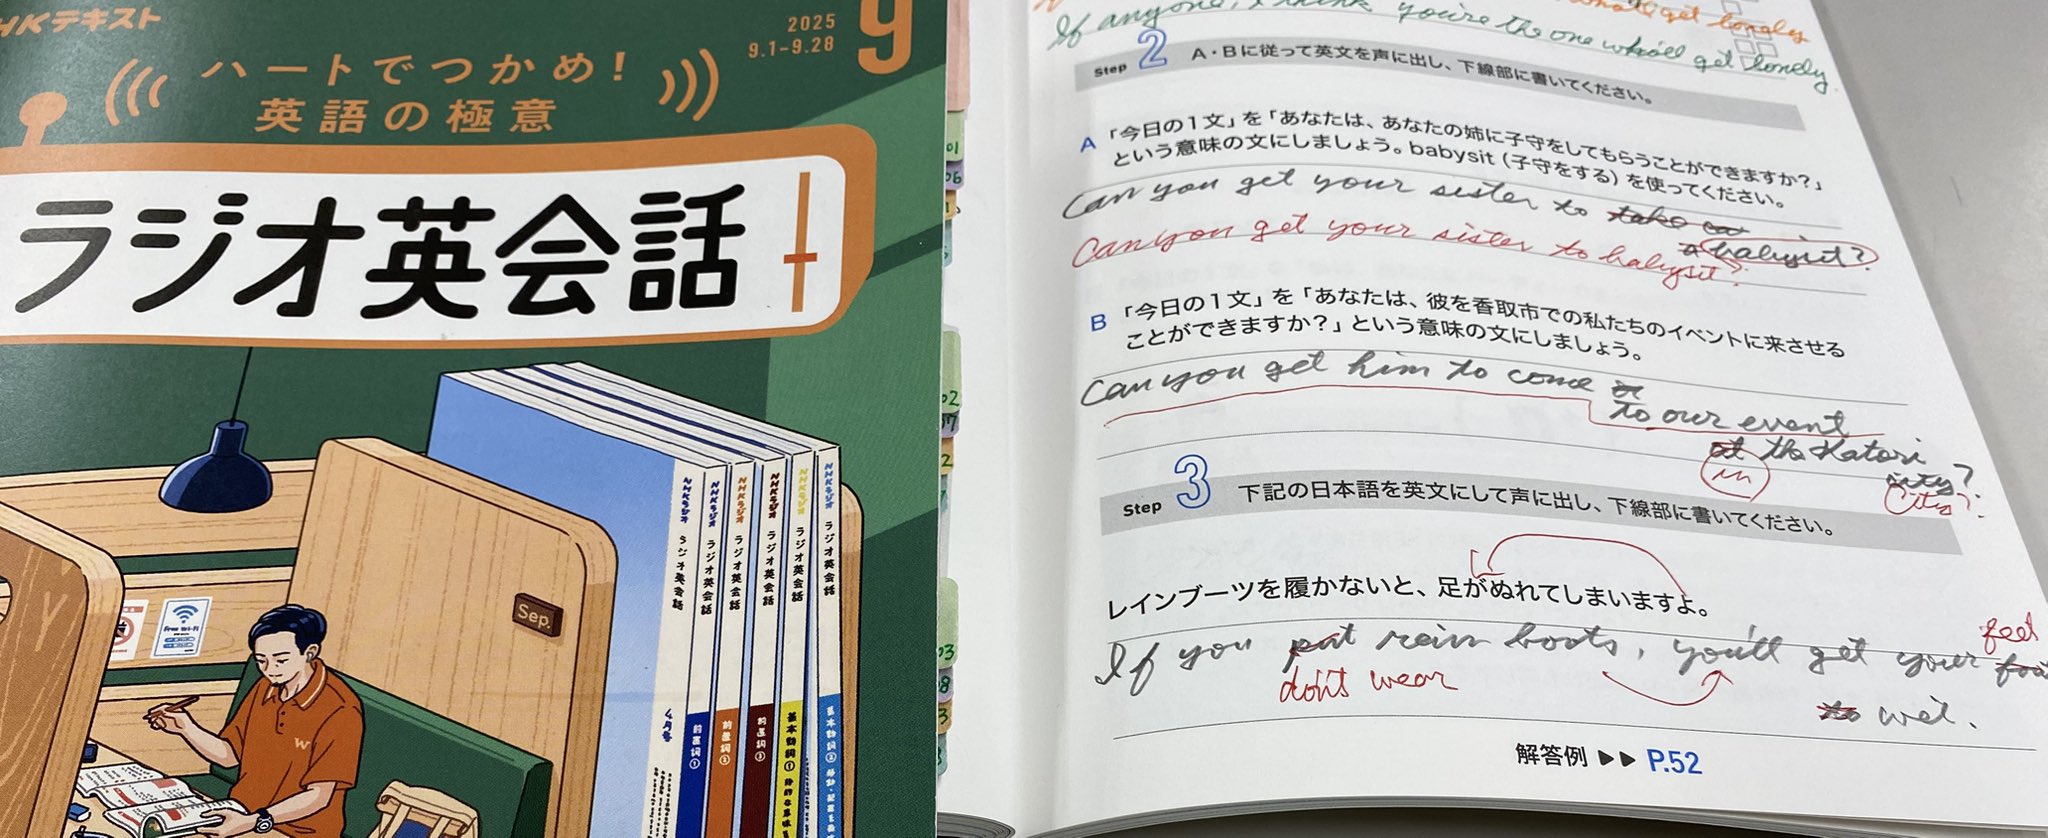 NHKテキスト
2025
9.1-9.28
9
ハートでつかめ!
英語の極意
ラジオ英会話
Sep.
Free Wi-Fi
NHKラジオ ラジオ英会話 4月号
NHKラジオ ラジオ英会話 前置詞①
NHKラジオ ラジオ英会話 前置詞②
NHKラジオ ラジオ英会話 前置詞③
NHKラジオ ラジオ英会話 基本動詞①
NHKラジオ ラジオ英会話 基本動詞②
W
get lonely
If anyone, I think you're the one who'll get lonely.
Step 2 A・Bに従って英文を声に出し、下線部に書いてください。
A 「今日の1文」を「あなたは、あなたの姉に子守をしてもらうことができますか?」
という意味の文にしましょう。babysit(子守をする)を使ってください。
Can you get your sister to take
a babysit?
Can you get your sister to babysit?
B 「今日の1文」を「あなたは、彼を香取市での私たちのイベントに来させる
ことができますか?」という意味の文にしましょう。
Can you get him to come
to our event
at the Katori
in
city?
City?
Step 3 下記の日本語を英文にして声に出し、下線部に書いてください。
レインブーツを履かないと、足がぬれてしまいますよ。
feet
If you put rain boots, you'll get your
don't wear
to wet.
解答例 ▶▶ P.52